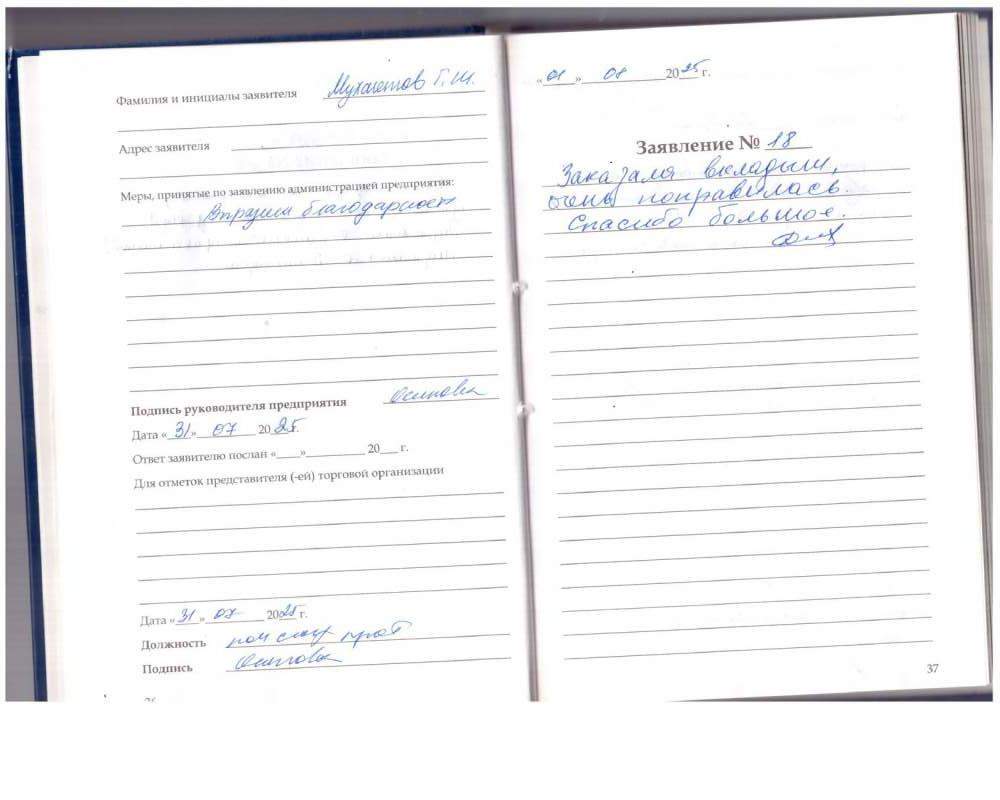 Фамилия и инициалы заявителя Мухаметов Г.Ш.
Адрес заявителя
Меры, принятые по заявлению администрацией предприятия:
благодарност
Подпись руководителя предприятия Осипова
Дата «31» 07 2025г.
Ответ заявителю послан «____»__________ 20___ г.
Для отметок представителя (-ей) торговой организации
Дата «31» 07 2025 г.
Должность
Подпись Осипова
«01» 08 2025 г.
Заявление № 18
Заказала вкладыш,
очень понравилась.
Спасибо большое.
37